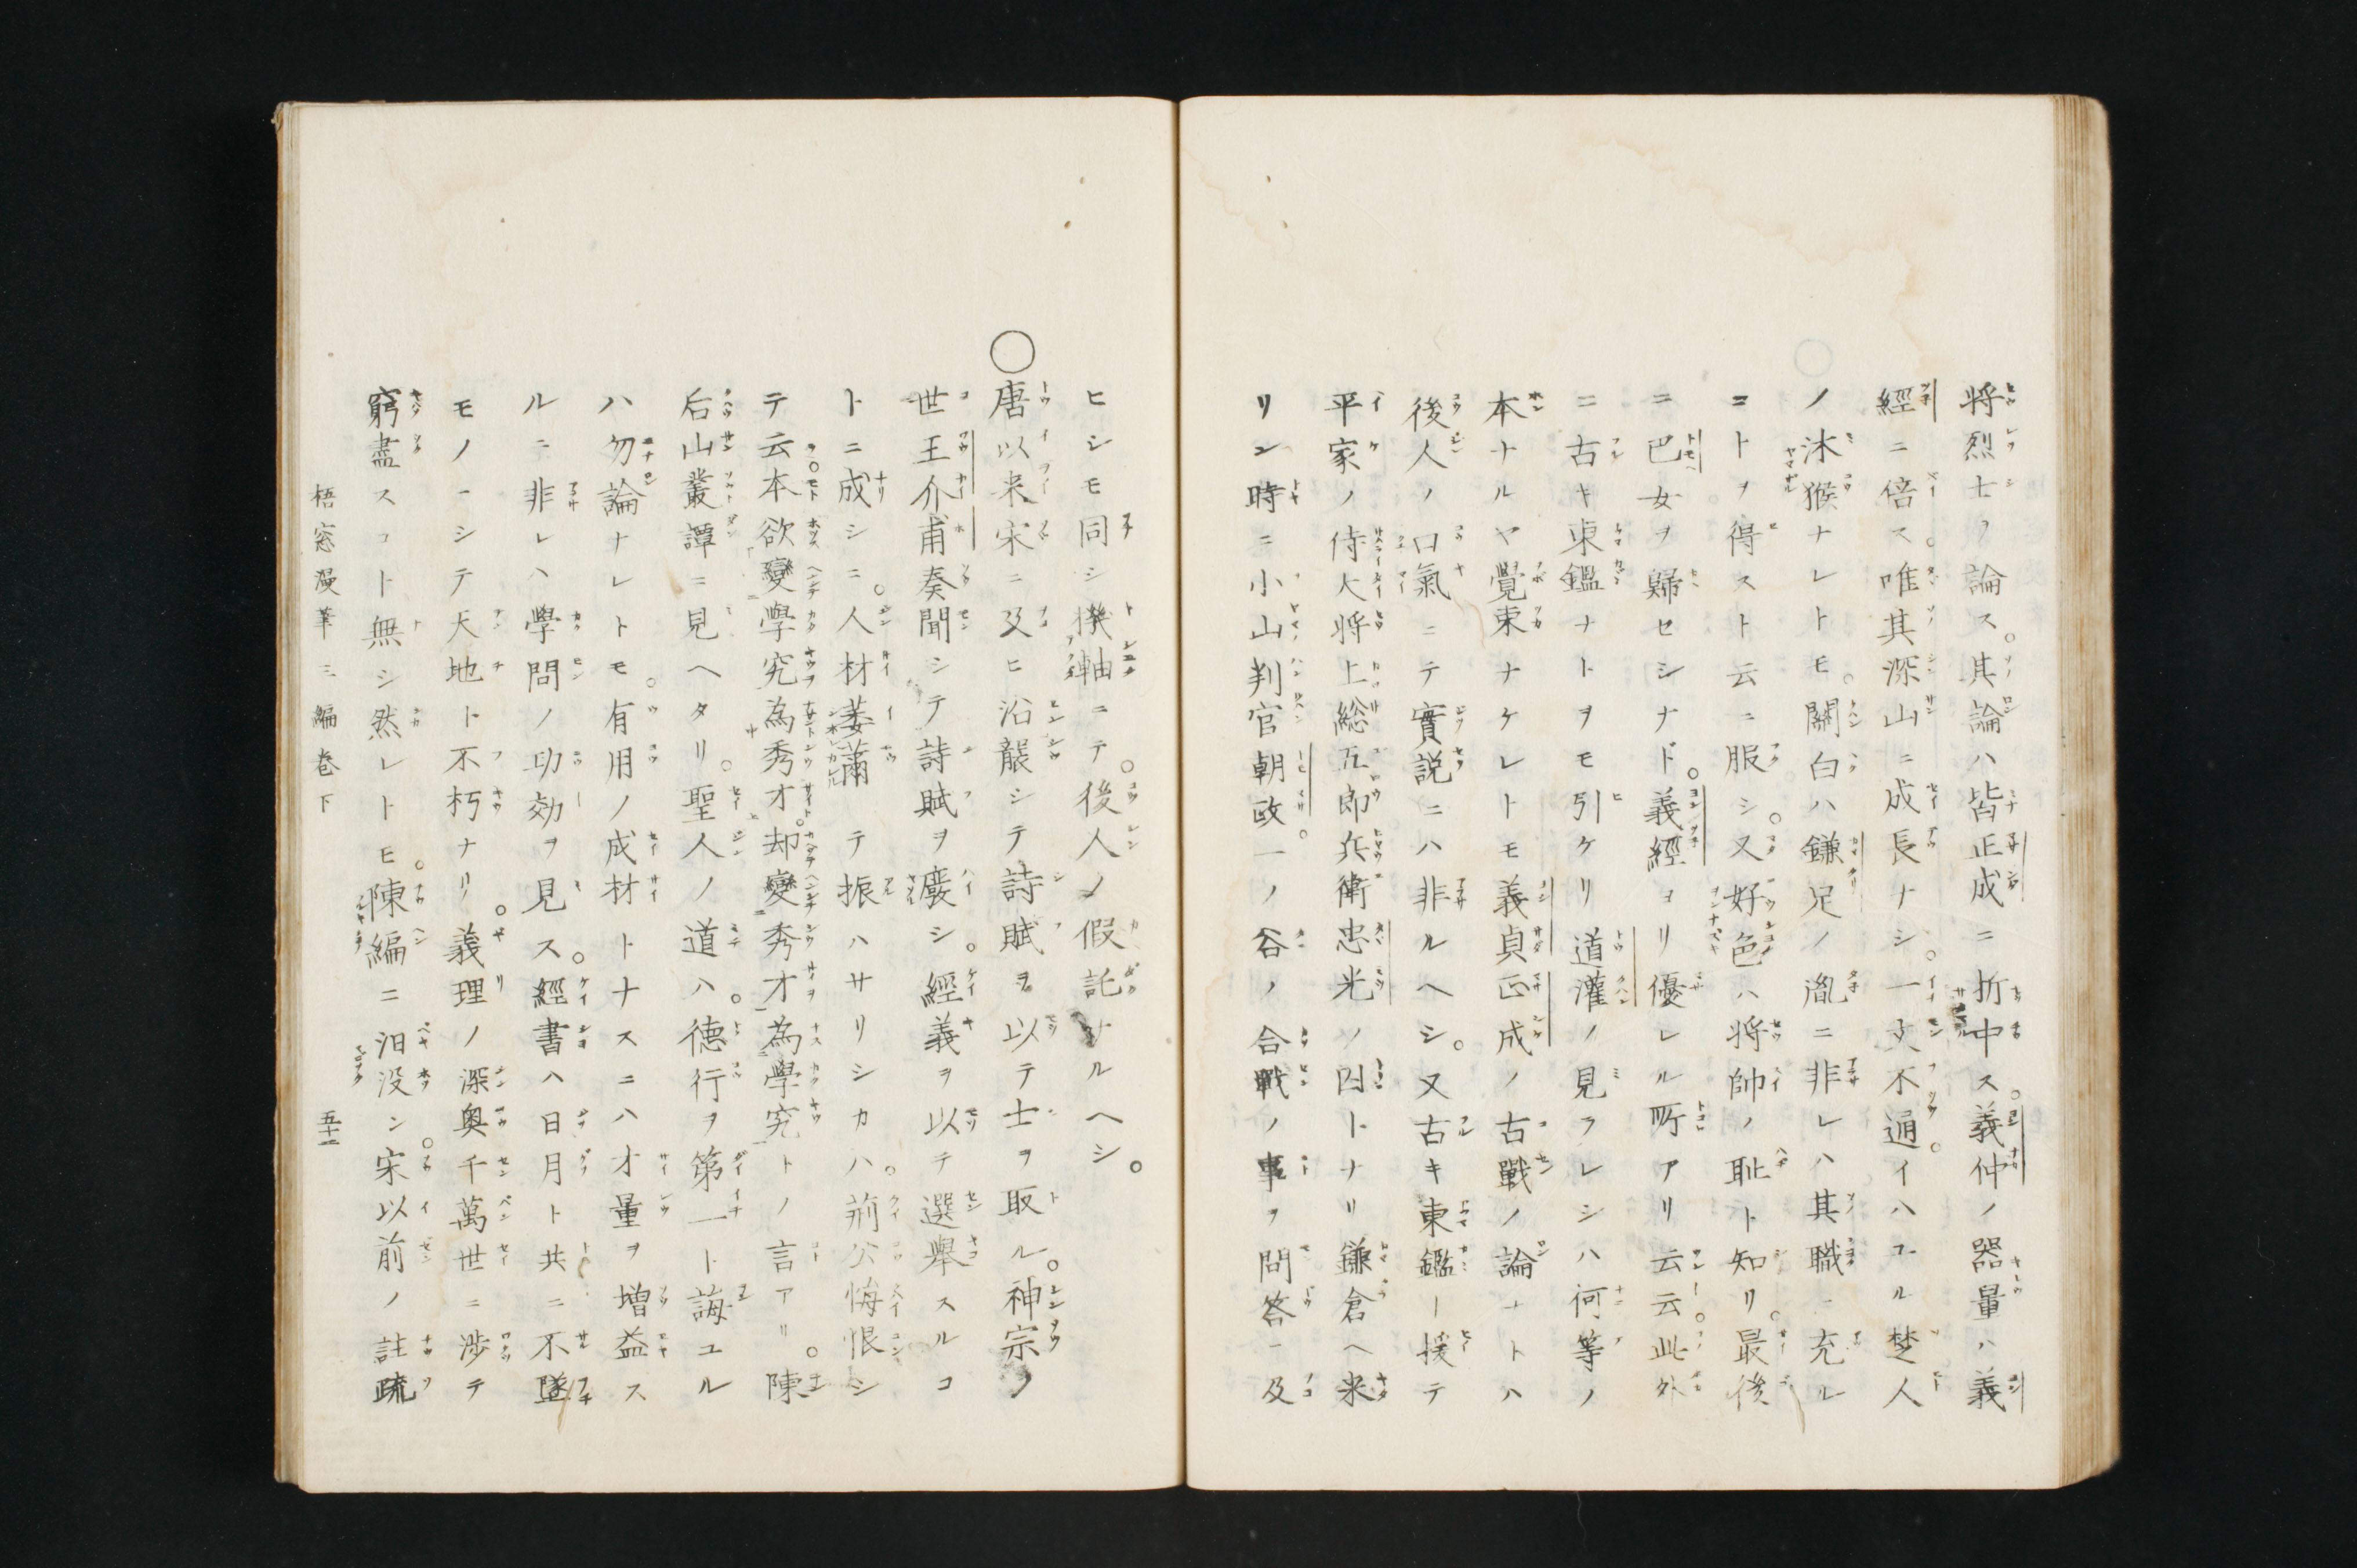 将烈士ヲ論ス。其論ハ皆正成ニ折中ス。義仲ノ器量ハ義
經ニ倍ス。唯其深山ニ成長ナシ。一文不通。イハユル楚人
ノ沐猴ナレトモ。關白ハ鎌足ノ胤ニ非レハ其職ニ充ル
コトヲ得スト云ニ服シ。又好色ハ将帥ノ耻ト知リ。最後
ニ巴女ヲ歸セシナド。義經ヨリ優レル所アリ云云。此外
ニ古キ東鑑ナトヲモ引ケリ道灌ノ見フレシハ何等ノ
本ナルヤ覺束ナケレトモ義貞正成ノ古戰ノ論ナトハ
後人ノ口氣ニテ實説ニハ非ルヘシ。又古キ東鑑ヲ援テ
平家ノ侍大将上総五郎兵衛忠光ノ囚トナリ鎌倉ヘ来
リシ時ニ小山判官朝政。一ノ谷ノ合戰ノ事ヲ問答ニ及
ヒシモ同シ機軸ニテ。後人ノ假託ナルヘシ。
○唐以来宋ニ及ヒ沿襲シテ詩賦ヲ以テ士ヲ取ル。神宗ノ
世王介甫奏聞シテ詩賦ヲ廢シ。經義ヲ以テ選擧スルコ
トニ成シニ。人材萎薾テ振ハサリシカハ。荊公悔恨シ
テ云本欲變學究為秀才。却變秀才為學究トノ言アリ。陳
后山叢譚ニ見ヘタリ。聖人ノ道ハ。德行ヲ第一ト誨ユル
ハ勿論ナレトモ。有用ノ成材トナスニハ才量ヲ増益ス
ルニ非レハ學問ノ功効ヲ見ス。經書ハ日月ト共ニ不墜
モノニシテ天地ト不朽ナリ。義理ノ深奥千萬世ニ渉テ
窮盡スコト無シ然レトモ。陳編ニ汨没シ。宋以前ノ註疏
梧窓漫筆三編巻下 五十二